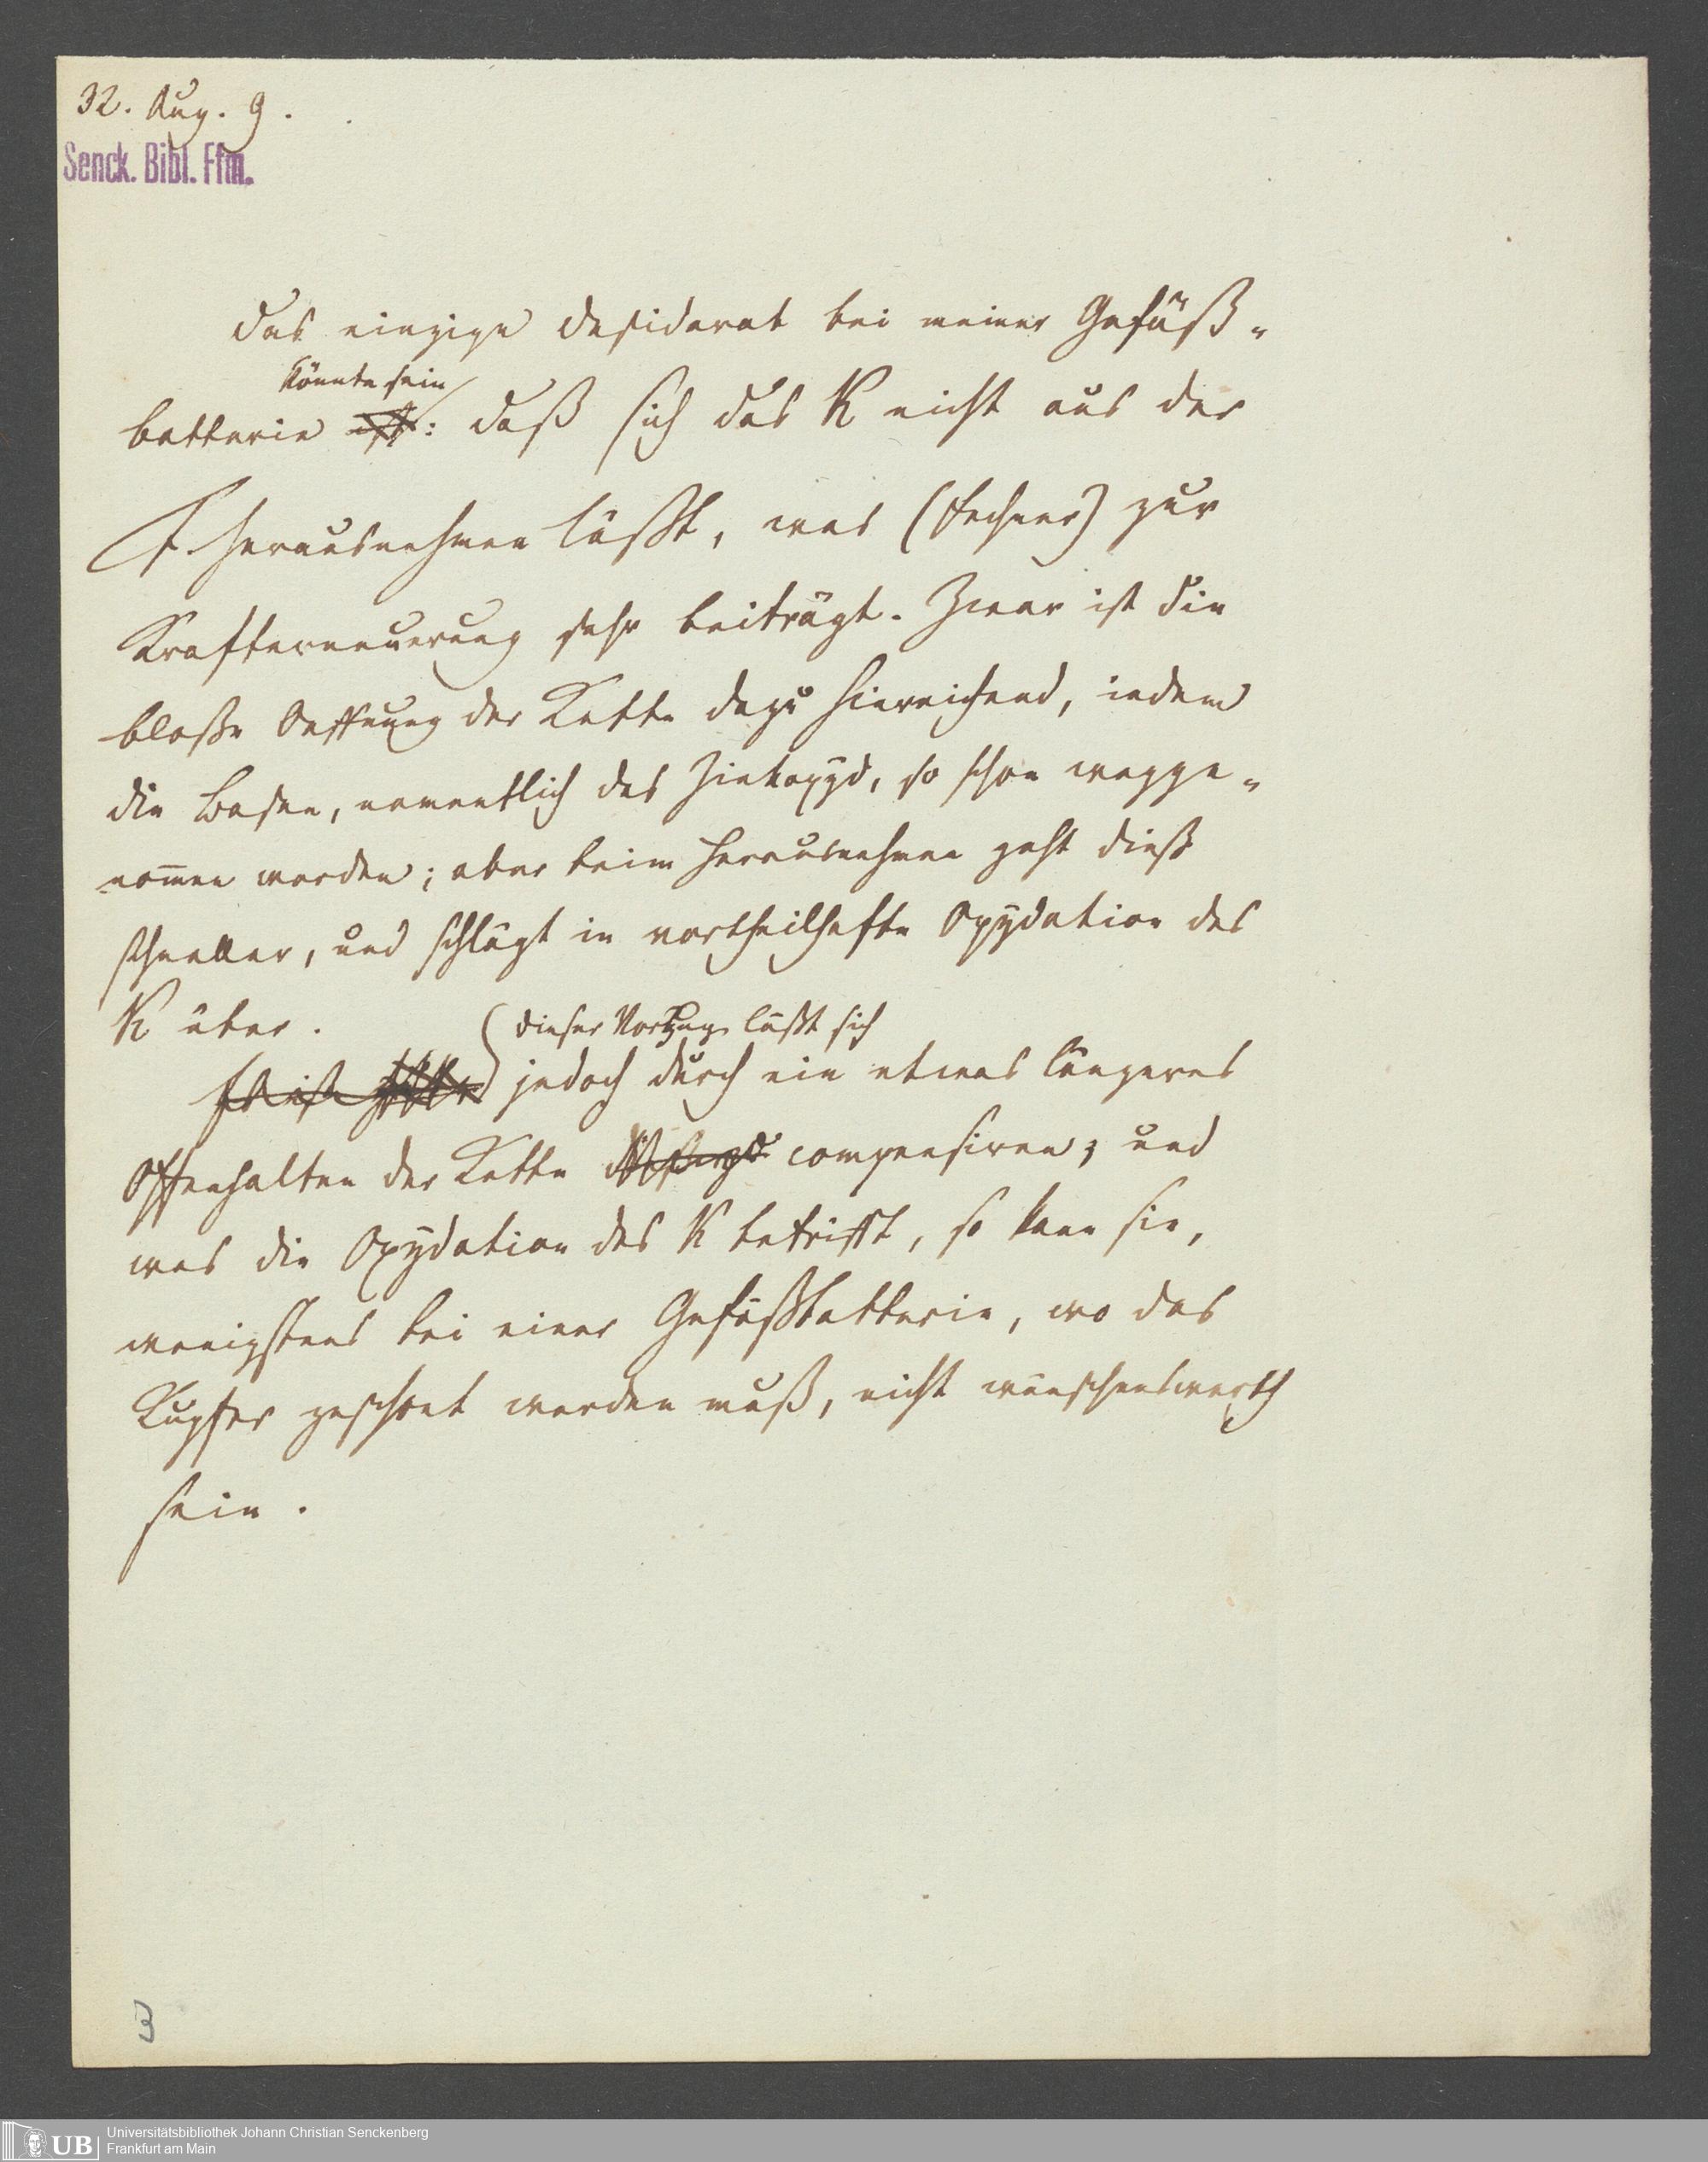 32. Aug. 9.
Senck. Bibl. Ffm.
Das einzige Desiderat bei meiner Gefäß-
könnte sein
batterie ist: daß sich das K nicht aus der
F. herausnehmen läßt, was (Fechner) zur
Krafterneuerung sehr beiträgt. Zwar ist die
bloße Oeffnung der Kette dazu hinreichend, indem
die Basen, namentlich das Zinkoxÿd, so schon wegge-
nom̄en werden; aber beim Herausnehmen geht dieß
schneller, und schlägt in vortheilhafte Oxÿdation des
K über.
dieser Vorzug läßt sich
Es ist jedoch durch ein etwas längeres
Offenhalten der Kette compensiren; und
was die Oxÿdation des K betrifft, so kann sie,
wenigstens bei einer Gefäßbatterie, wo das
Kupfer geschont werden muß, nicht wünschenswerth
sein.
3
UB
Universitätsbibliothek Johann Christian Senckenberg
Frankfurt am Main